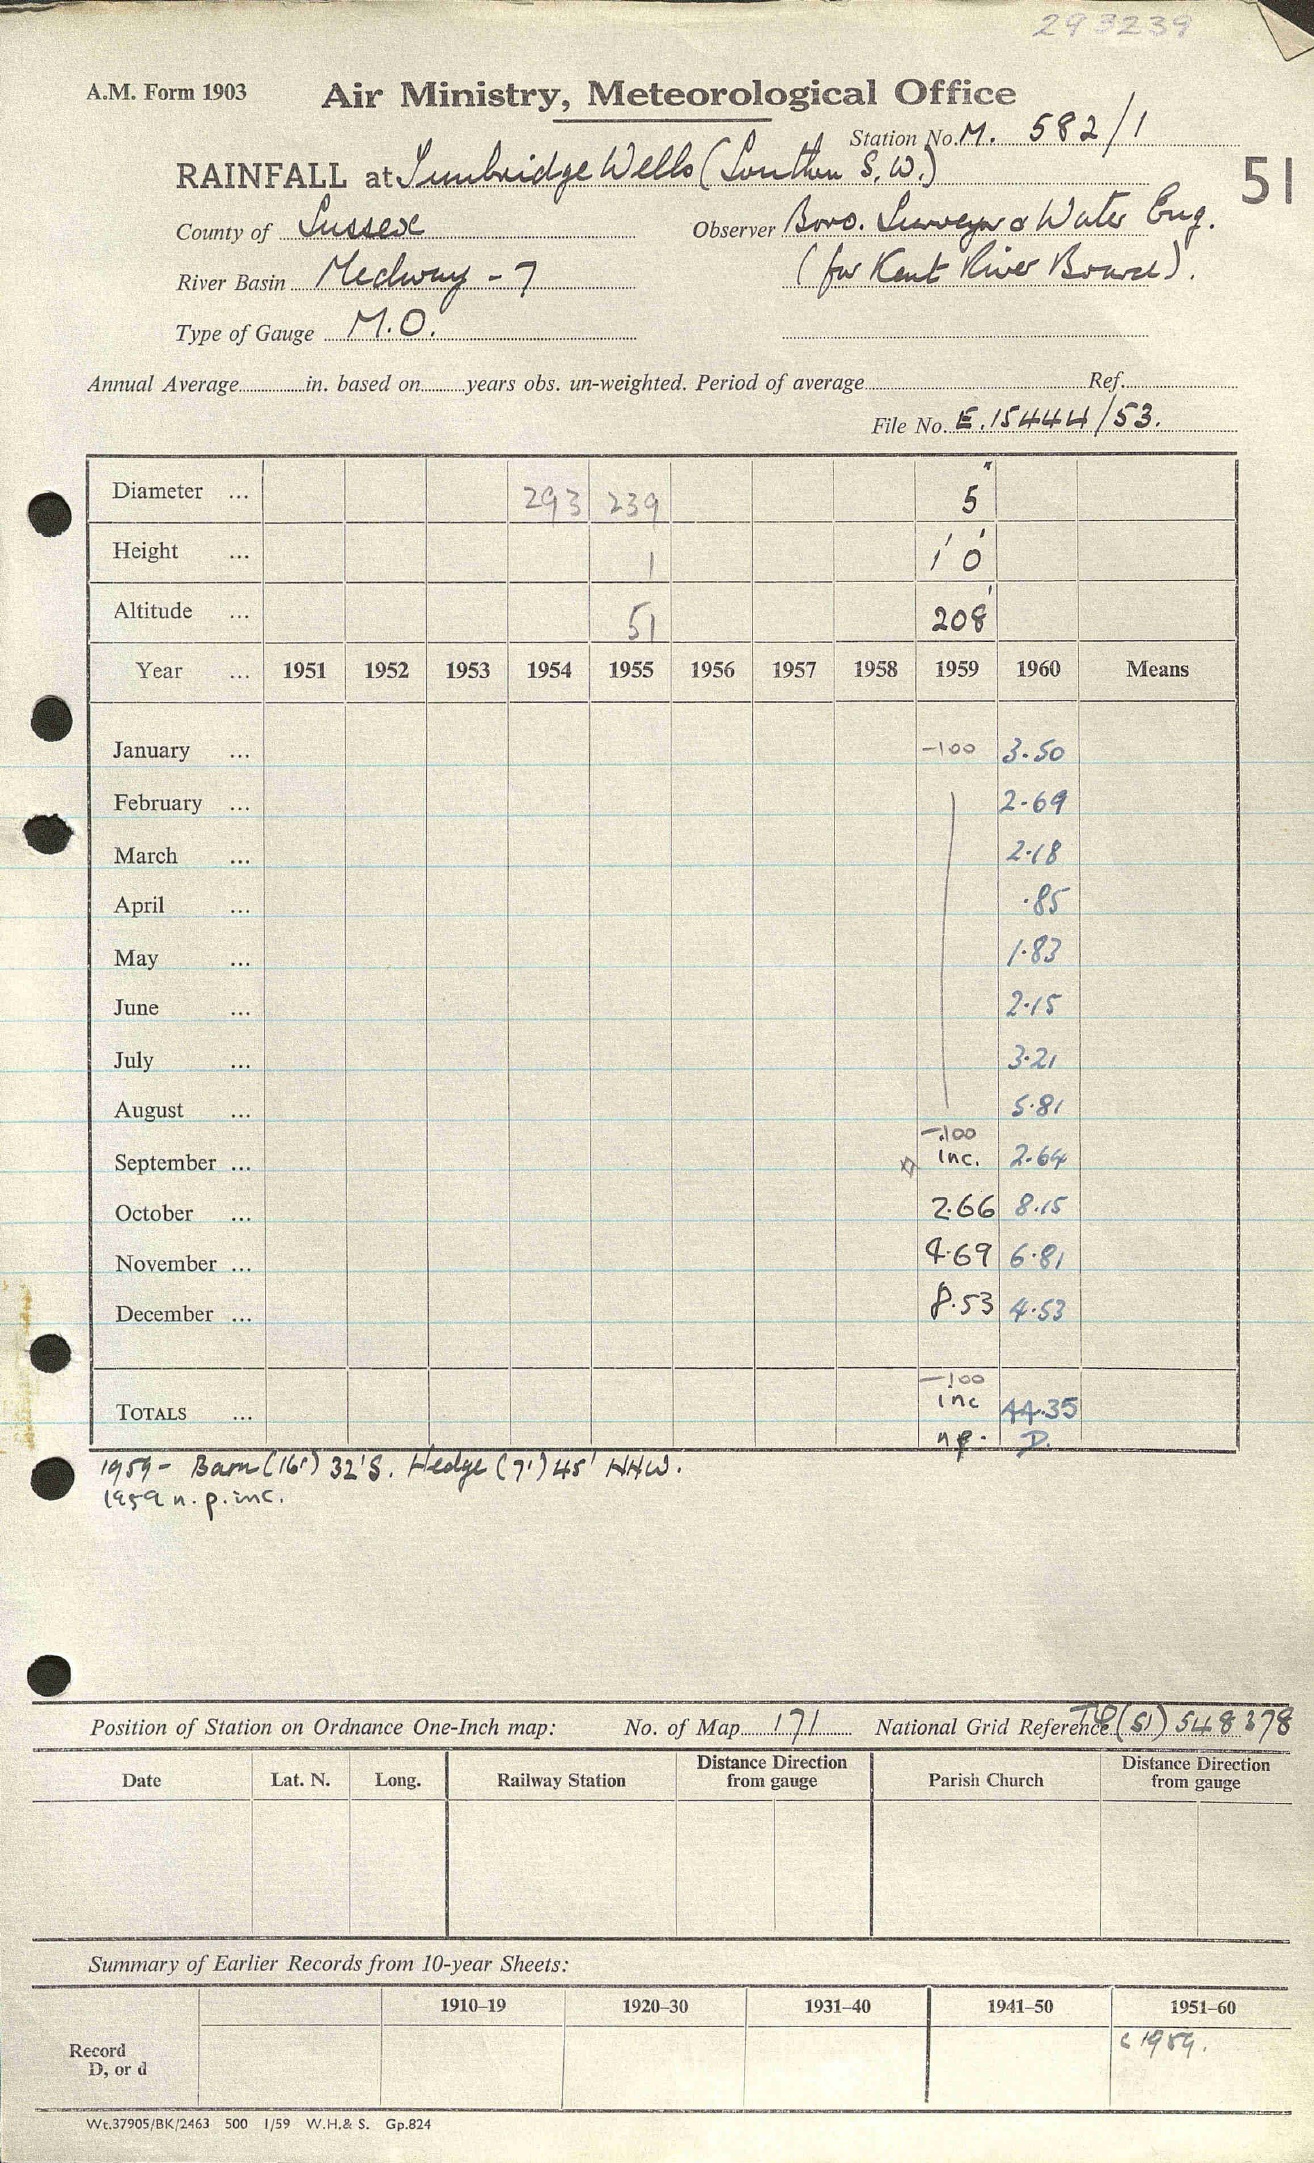 293239
A.M. Form 1903 Air Ministry, Meteorological Office
Station No. M. 582/1
RAINFALL at Tunbridge Wells (Southern S.W.) 51
County of Sussex Observer Boro. Surveyor & Water Eng.
River Basin Medway - 7 (for Kent River Board).
Type of Gauge M.O.
Annual Average in. based on years obs. un-weighted. Period of average Ref.
File No. E.15444/53.
Diameter ... 293 239 5"
Height ... 1 1' 0'
Altitude ... 51 208'
Year ... 1951 1952 1953 1954 1955 1956 1957 1958 1959 1960 Means
January ... -100 3.50
February ... 2.69
March ... 2.18
April ... .85
May ... 1.83
June ... 2.15
July ... 3.21
August ... 5.81
-100
September ... inc. 2.64
October ... 2.66 8.15
November ... 4.69 6.81
December ... 8.53 4.53
-100
TOTALS ... inc 44.35
n.p. D.
1959 - Barn (16') 32'S. Hedge (7') 45' NNW.
1959 n.p. inc.
Position of Station on Ordnance One-Inch map: No. of Map 171 National Grid Reference (51) 548378
Date Lat. N. Long. Railway Station Distance Direction from gauge Parish Church Distance Direction from gauge
Summary of Earlier Records from 10-year Sheets:
1910–19 1920–30 1931–40 1941–50 1951–60
Record
D, or d
1959.
Wt.37905/BK/2463 500 1/59 W.H.& S. Gp.824